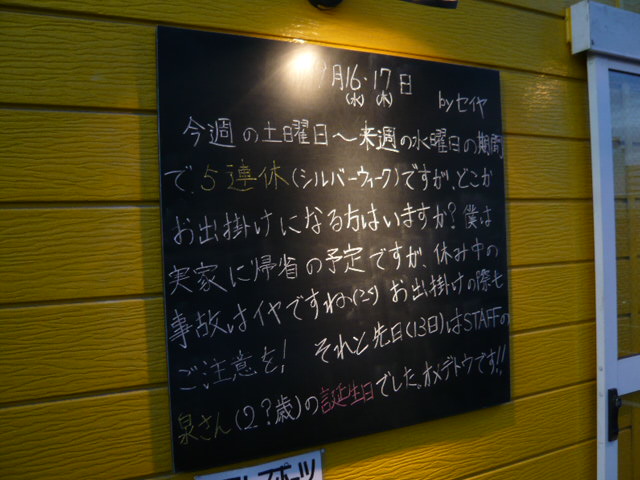 月16・17日
(水)(木) byセイヤ
今週の土曜日〜来週の水曜日の期間
で、5連休(シルバーウィーク)ですが、どこか
お出掛けになる方はいますか?僕は
実家に帰省の予定ですが、休み中の
事故はイヤですね お出掛けの際も
ご注意を! それと先日(13日)はSTAFFの
泉さん(2?歳)の誕生日でした。オメデトウです!!